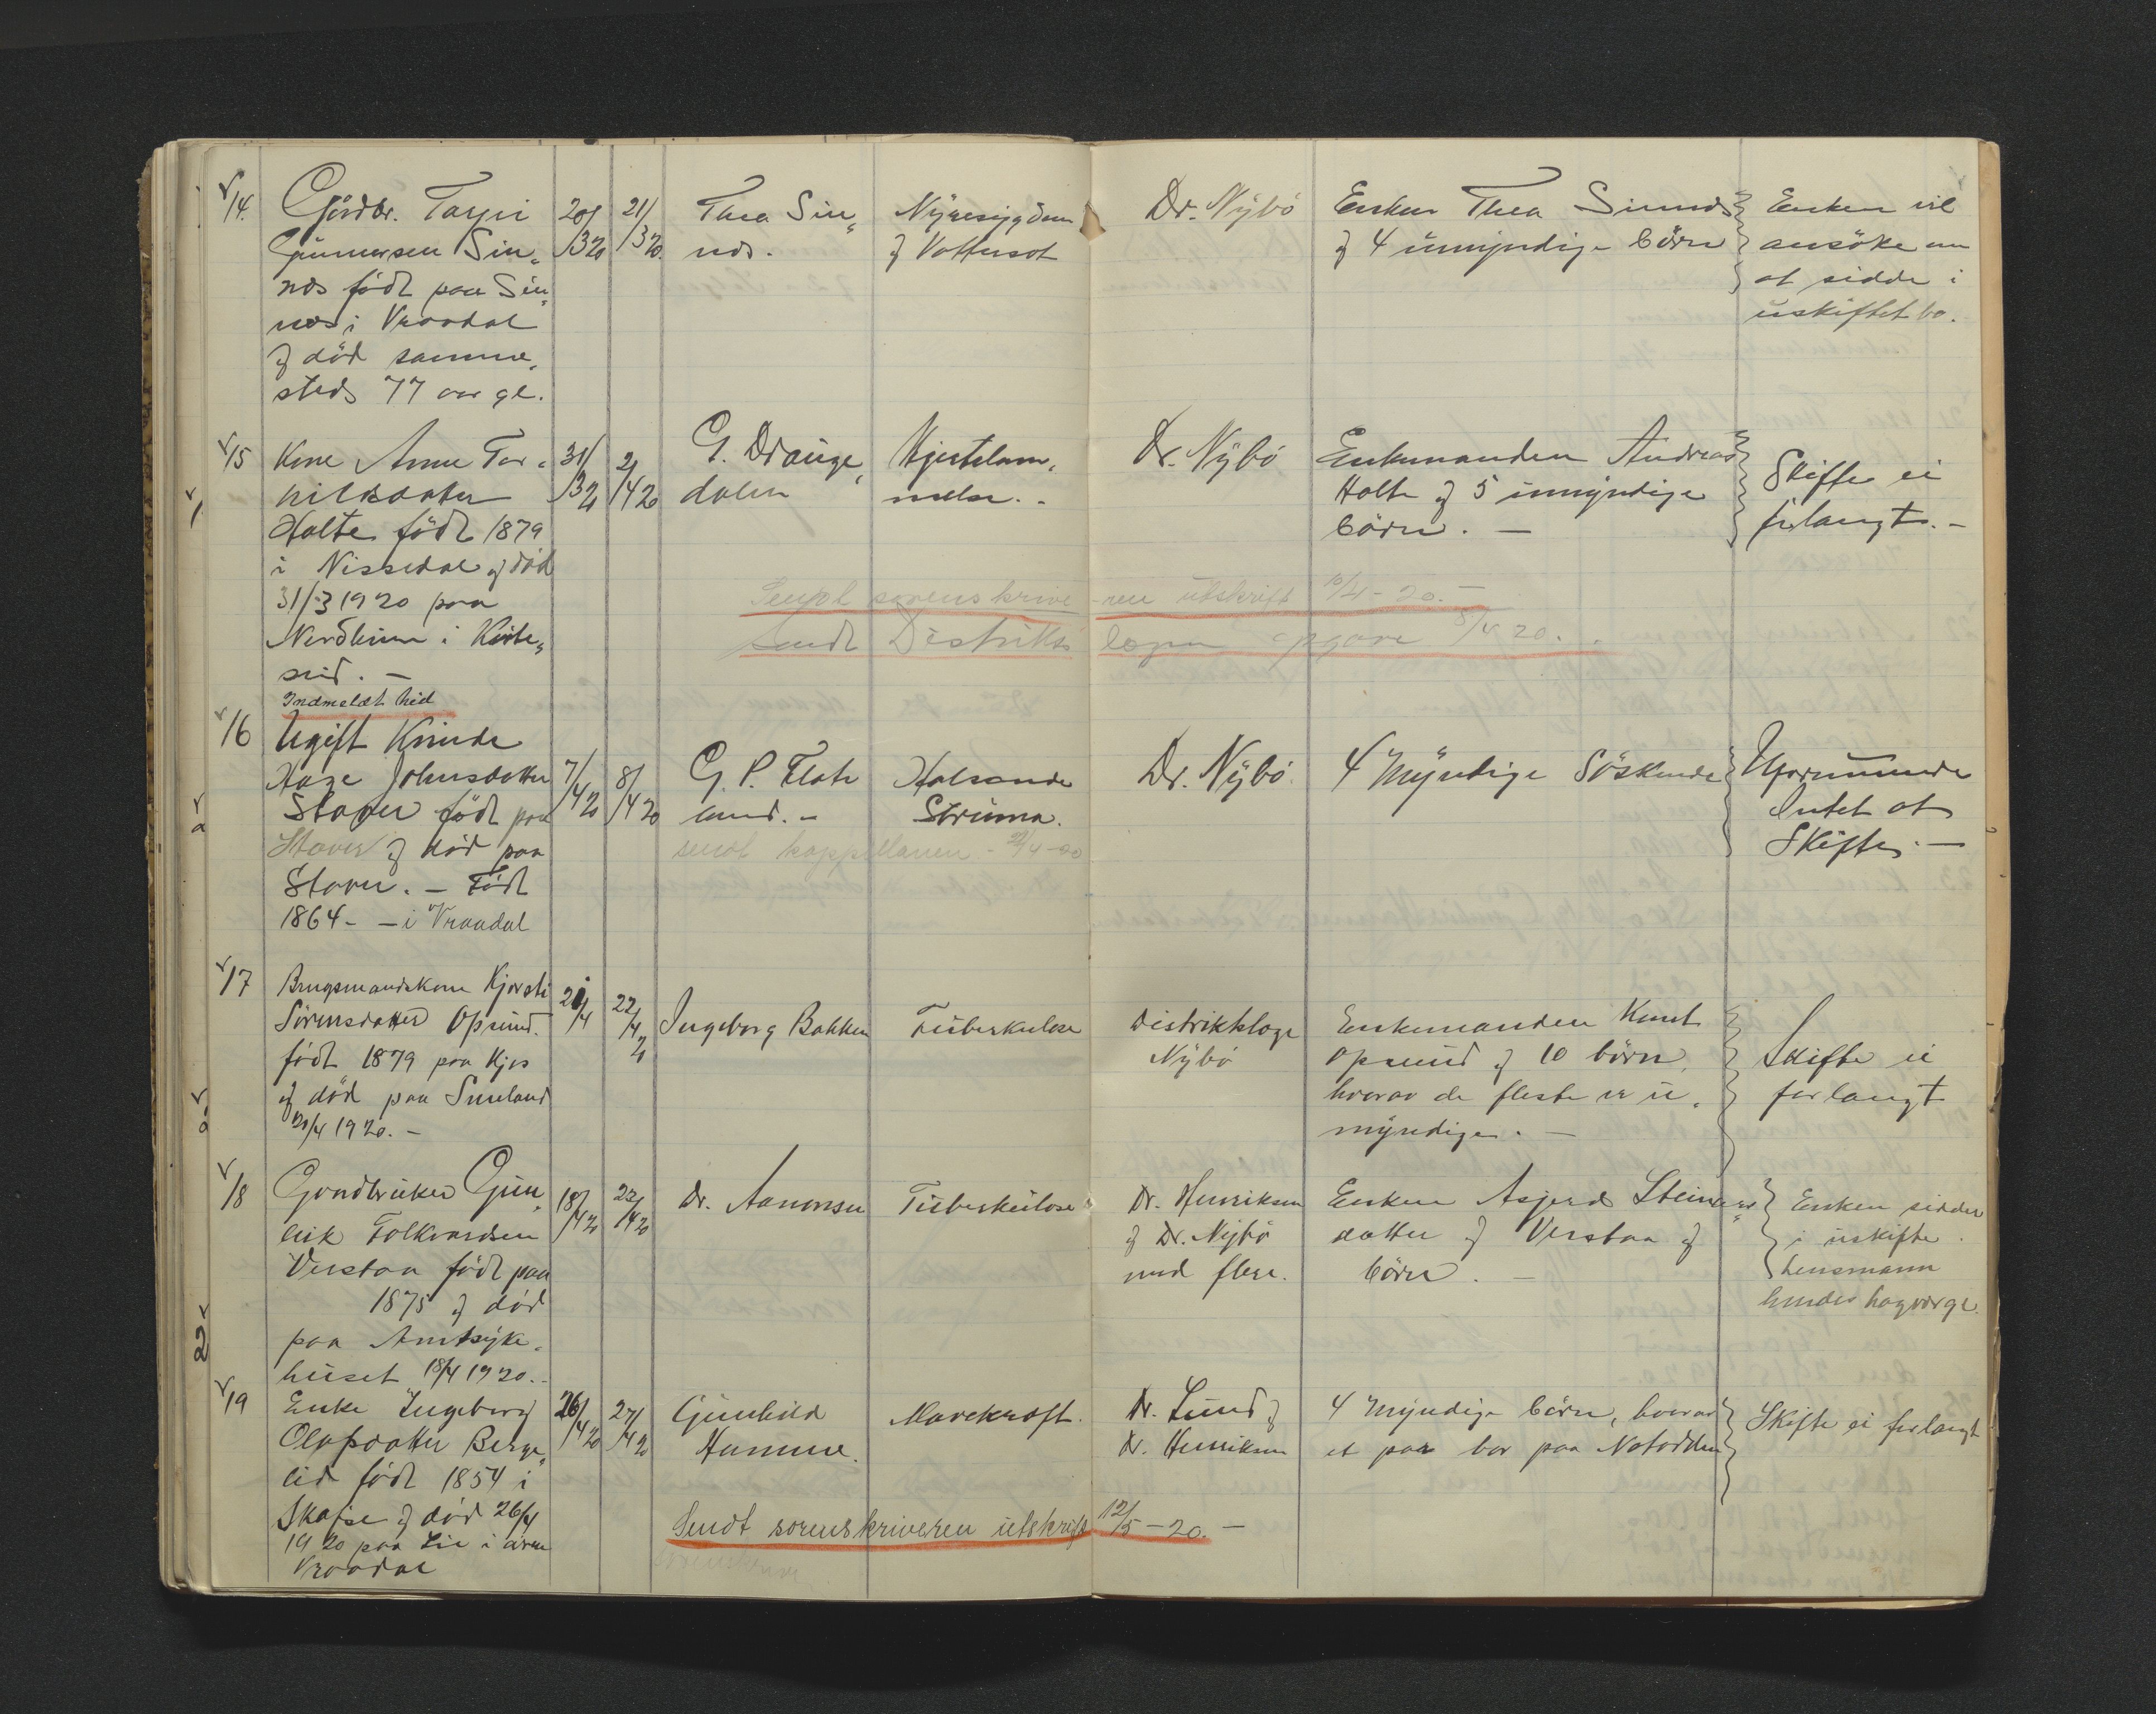 14. Gårdbr. Tarjei
Gunnarsen Sin„
nes födt paa Sin„
nes i Vraadal
og död samme„
steds 77 aar gl.
20/3 20
21/3 20.
Thea Sin„
nes.
Nyresygdom
og Vattersot
Dr. Nybö
Enken Thea Sinnes
og 4 umyndige börn
Enken vil
ansöke om
at sidde i
uskiftet bo.
15 Kone Anne Tor„
hildsdatter
Holte födt 1879
i Nissedal og död
31/3 1920 paa
Nordheim i Kvite„
seid. —
31/3 20
2/4 20
G. Drange„
dalen
Hjertelam„
melse. -
Dr. Nybö
Enkemanden Andreas
Holte og 5 umyndige
börn. —
Skifte ei
forlangt. -
Sendt sorenskrive-ren utskrift 10/4-20. —
Sendt Distriktslægen opgave 8/4 20.
Indmeldt hid
16 Ugift Kvinde
Aase Johnsdatter
Staver födt paa
Staver og död paa
Staver. — Födt
1864- — i Vraadal
7/4 20
8/4 20
G. P. Flate
lund. -
Halsonde
Struma.
sendt kappellanen - 22/4-20
Dr. Nybö.
4 Myndige Söskende
Intet at
Skifte. —
17 Brugsmandskone Kjersti
Sörensdatter Opsund.
födt 1879 paa Kjos
og död paa Smeland
20/4 1920. —
20/4
22/4 20
Ingeborg Bakken
Tuberkulose
Distriktslæge
Nybö
Enkemanden Knut
Opsund og 10 börn,
hvorav de fleste er u„
myndige. —
Skifte ei
forlangt
18 Gardbruker Gun„
leik Folkvardsen
Verstaa födt paa
1875 og död
paa Amtsyke„
huset 18/4 1920. -
18/4 20
22/4 20
Dr. Aanonsen
Tuberkulose
Dr. Henriksen
og Dr. Nybö
med flere.
Enken Asjerd Steinars„
datter og Verstaa og
börn. —
Enken sidder
i uskifte.
Lensmann
hendes lagværge.
19 Enke Ingeborg
Olafsdatter Berge„
lid födt 1854 i
Skafse og död 26/4
1920 paa Lie i övre
Vraadal
26/4 20
27/4 20
Gunhild
Hamme.
Mavekræft.
Dr. Lund og
Dr. Henriksen
4 Myndige börn, hvorav
et par bor paa Notodden
Skifte ei forlangt
Sendt sorenskriveren utskrift 12/5-20. —
22